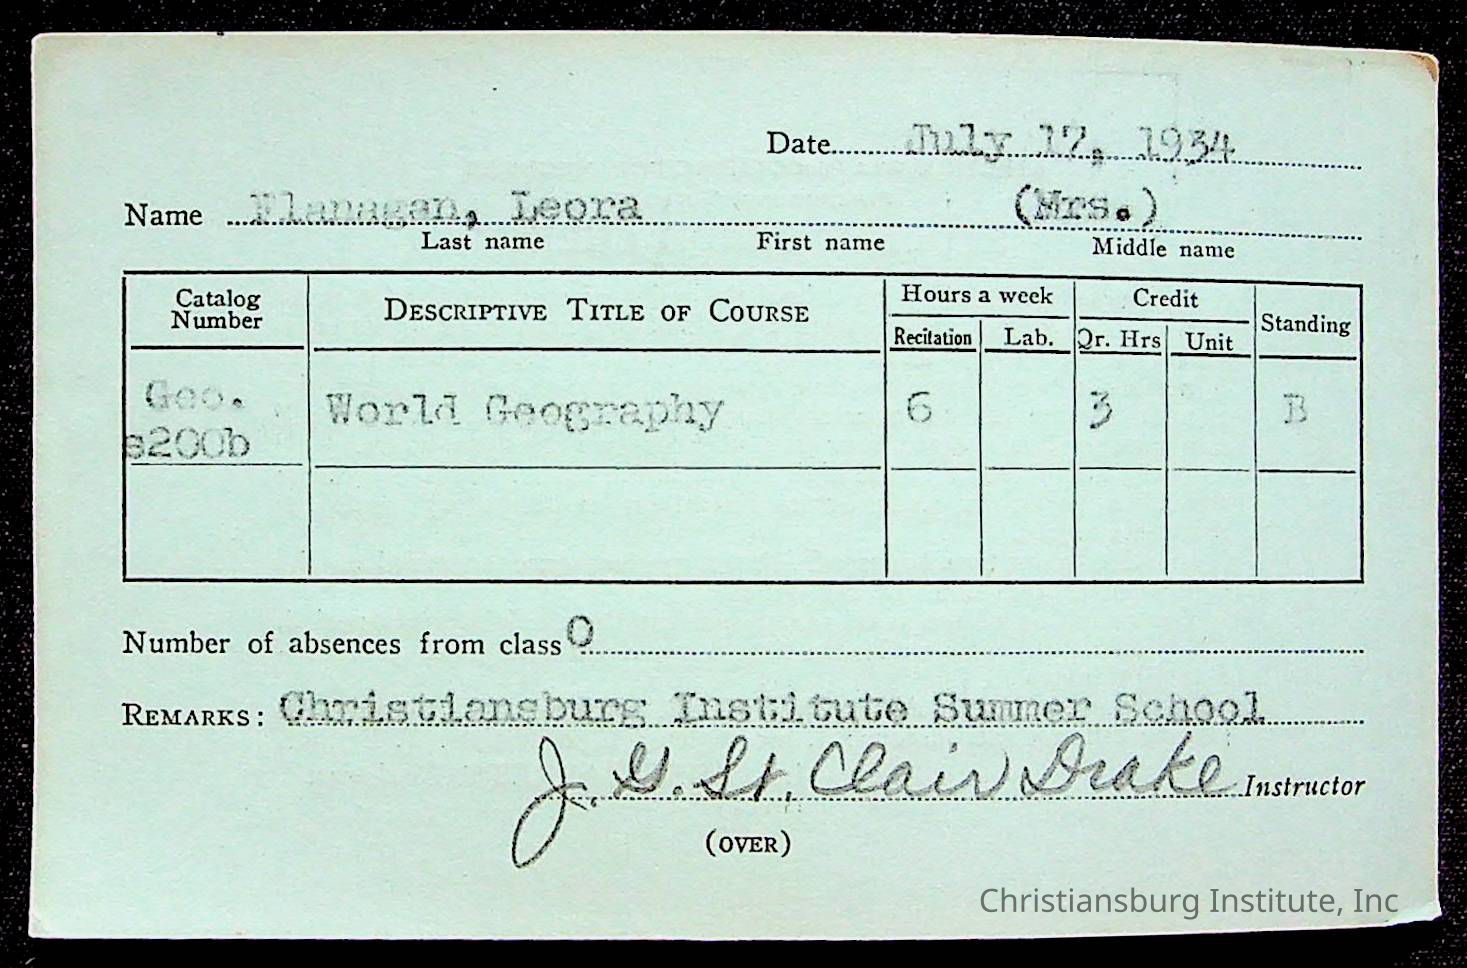 Date July 17, 1934
Name Flanagan, Leora (Mrs.)
Last name First name Middle name
Catalog Number DESCRIPTIVE TITLE OF COURSE Hours a week Credit Standing
Recitation Lab. Qr. Hrs Unit
Geo. s200b World Geography 6 3 B
Number of absences from class 0
REMARKS: Christiansburg Institute Summer School
J. G. St. Clair Drake Instructor
(OVER)
Christiansburg Institute, Inc